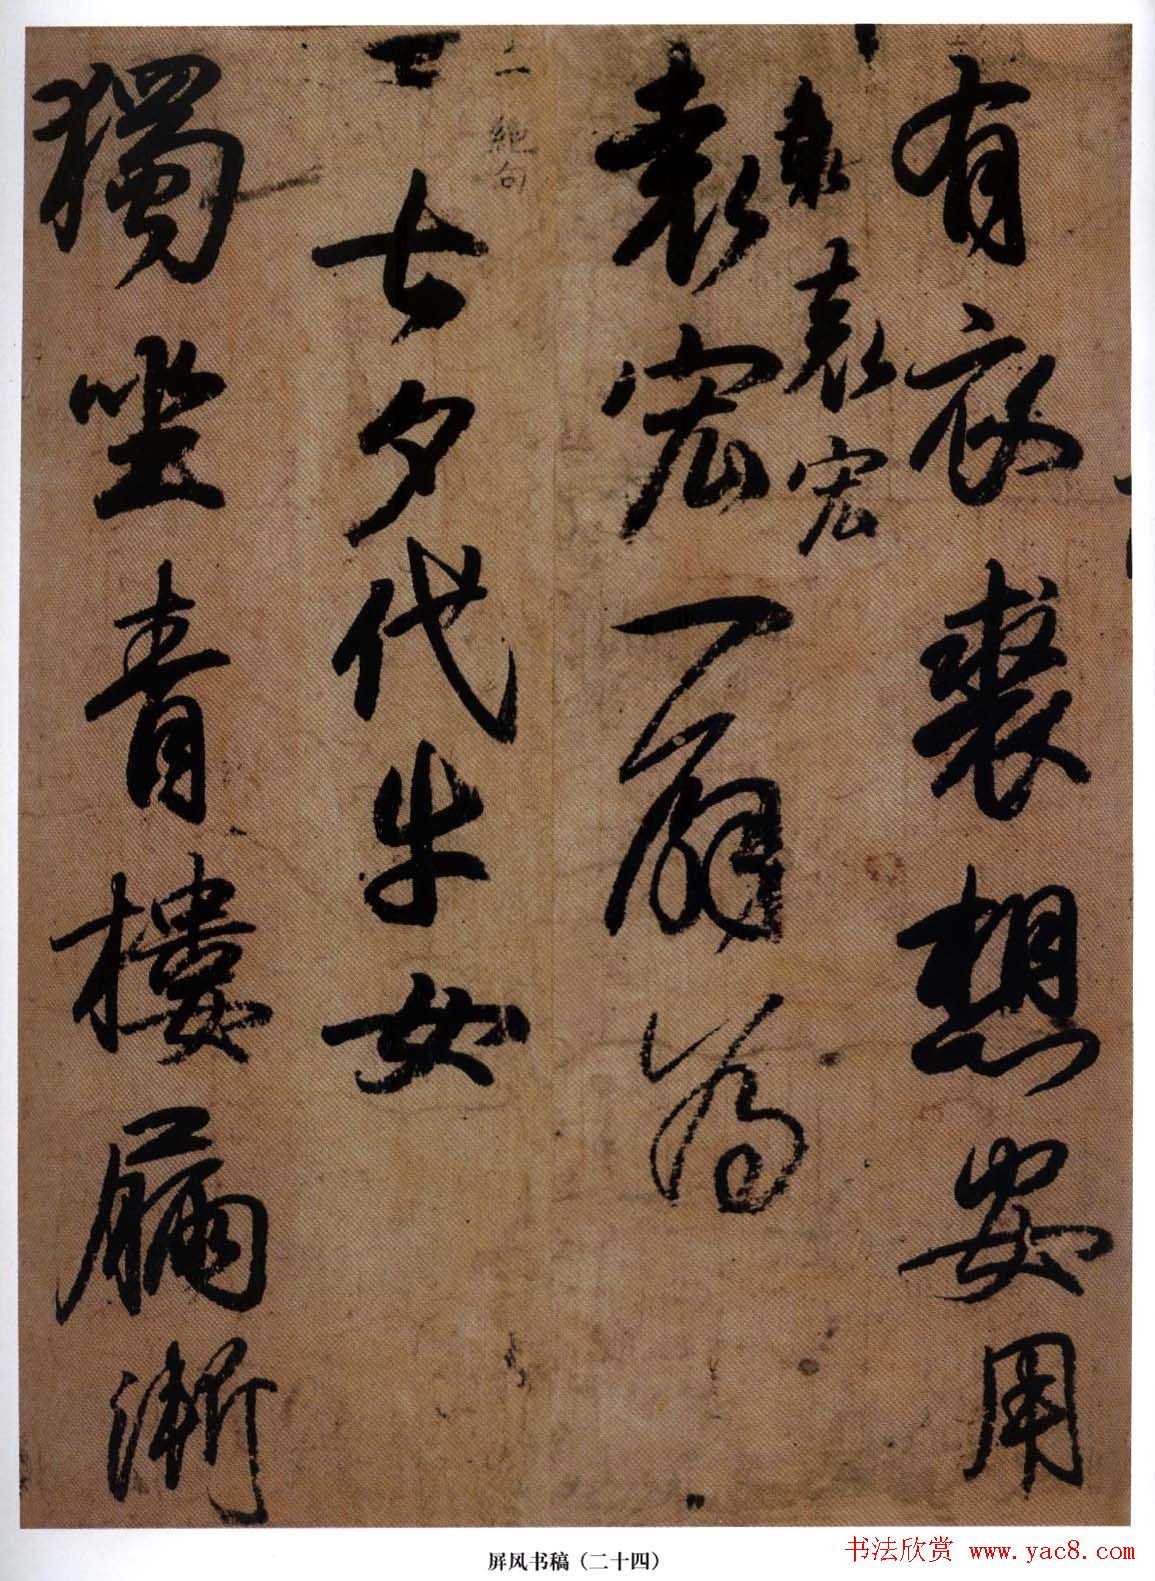 有衣裘想安用
袁 袁宏
袁宏一扇为
二絶句
七夕代牛女
獨坐青樓漏漸
屏风书稿（二十四）
书法欣赏 www.yac8.com